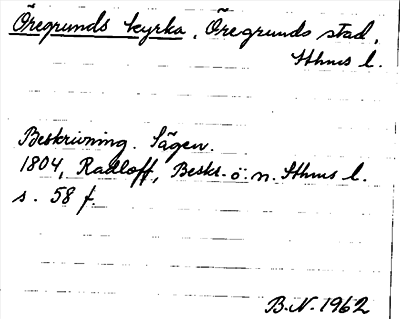 Öregrunds kyrka, Öregrunds stad,
Sthms l.
Beskrivning. Sägen.
1804, Radloff, Beskr. ö. n. Sthms l.
s. 58 f.
B.N. 1962